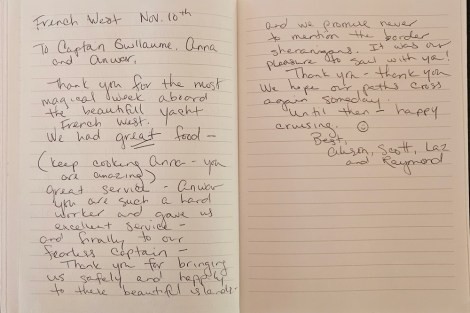 French West Nov. 10th
To Captain Guillaume, Anna
and Anwar,
Thank you for the most
magical week aboard
the beautiful yacht
French West.
We had great food -
(keep cooking Anna - you
are amazing)
great service - Anwar
you are such a hard
worker and gave us
excellent service -
and finally to our
fearless captain -
Thank you for bringing
us safely and happily
to these beautiful islands -
and we promise never
to mention the border
shenanigans. It was our
pleasure to sail with ya!
Thank you - thank you
We hope our paths cross
again someday.
Until then - happy
cruising. ☺
Best,
Scott, Laz
and Raymond